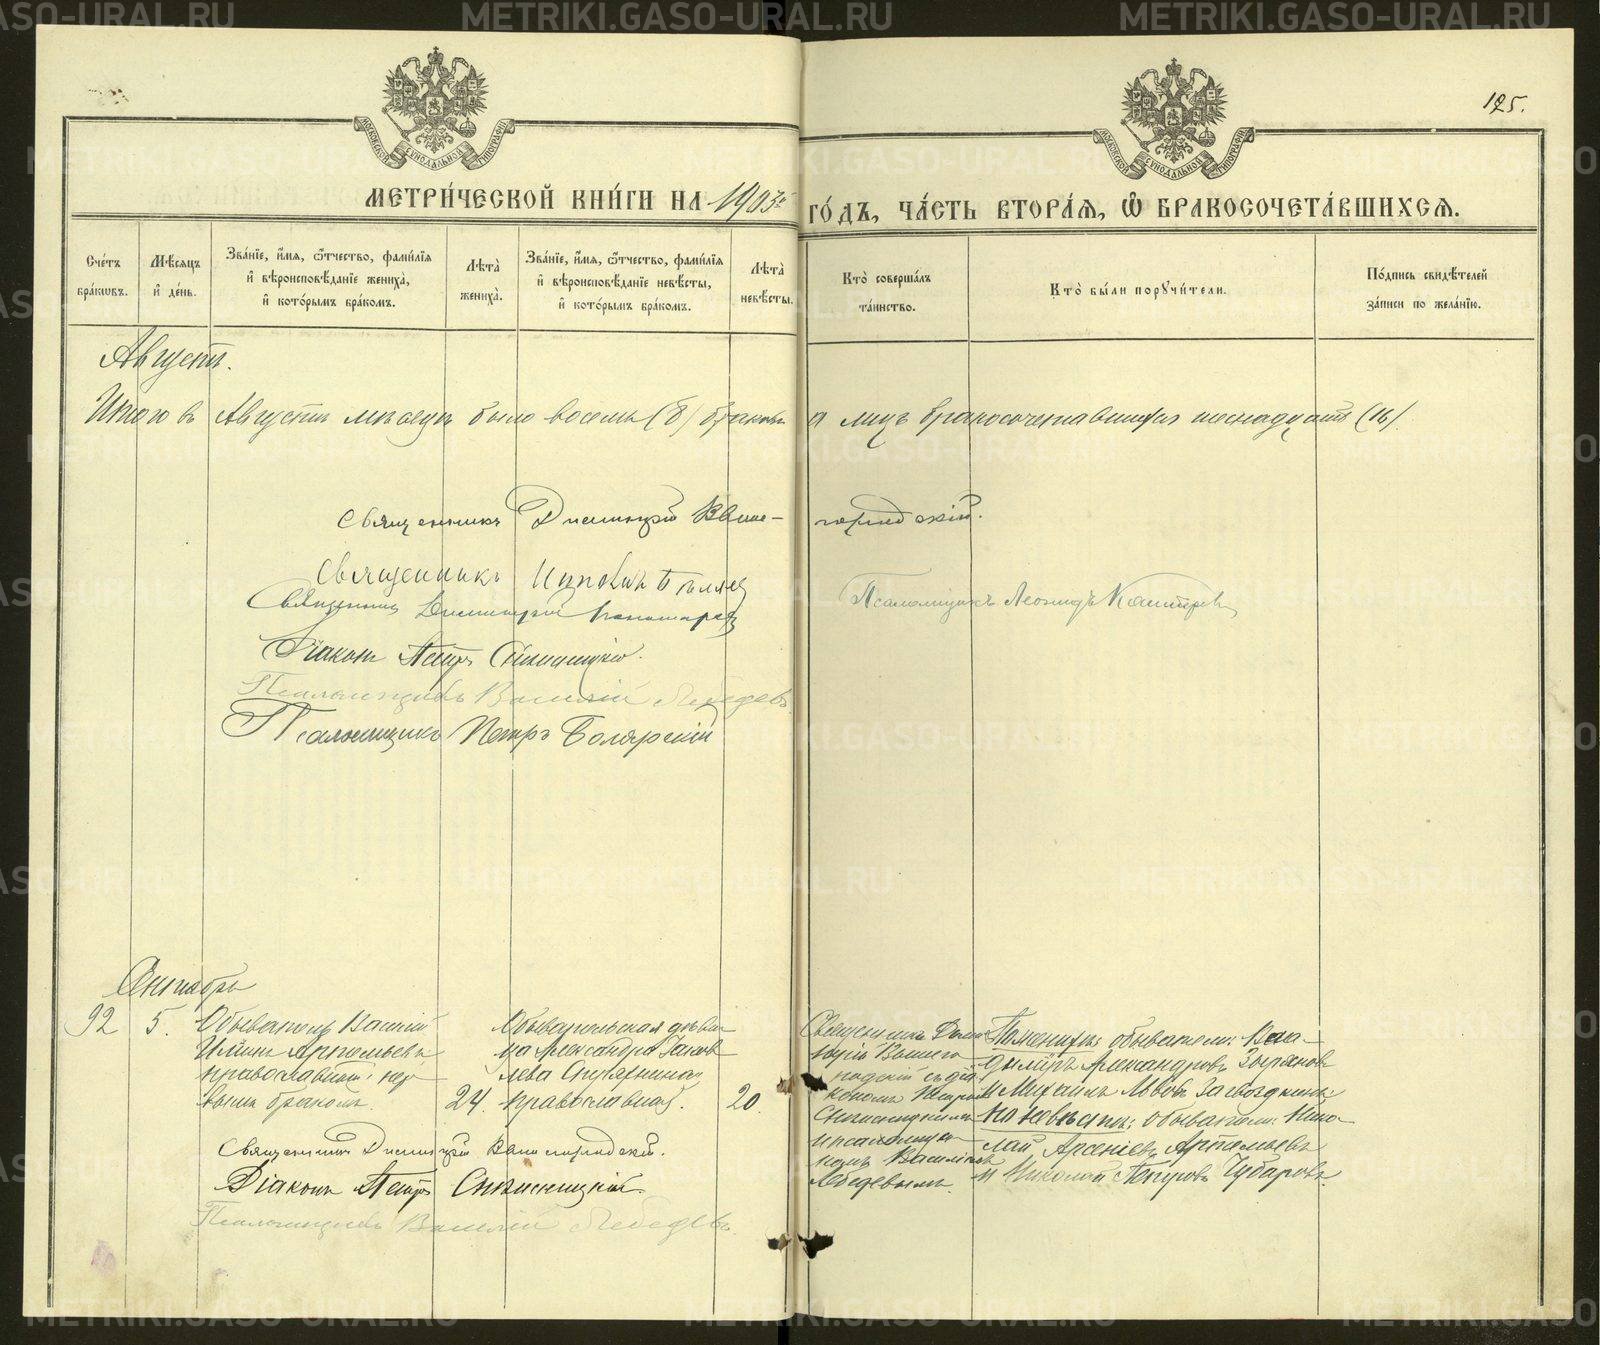 METRIKI.GASO-URAL.RU
125.
МОСКОВСКОЙ СѴНОДАЛЬНОЙ ТИПОГРАФІИ
МОСКОВСКОЙ СѴНОДАЛЬНОЙ ТИПОГРАФІИ
МЕТРИ́ЧЕСКОЙ КНИ́ГИ НА 1903й ГО́ДЪ, ЧА́СТЬ ВТОРА́Я, Ѽ БРАКОСОЧЕТА́ВШИХСЯ.
Сче́тъ бра́кѡвъ.
Мѣ́сяцъ и҆ де́нь.
Зва́нїе, и҆́мя, ѻ҆́тчество, фами́лїя и҆ вѣроисповѣ́данїе жениха̀, и҆ кото́рымъ бра́комъ.
Лѣ́та жениха̀.
Зва́нїе, и҆́мя, ѻ҆́тчество, фами́лїя и҆ вѣроисповѣ́данїе невѣ́сты, и҆ кото́рымъ бра́комъ.
Лѣ́та невѣ́сты.
Кто̀ соверша́лъ та́инство.
Кто̀ бы́ли порꙋчи́тели.
По́дпись свидѣ́телей за́писи по жела́нїю.
Августъ.
Итого въ Августѣ мѣсяцѣ было восемь (8) браковъ а лицъ бракосочетавшихся шестнадцать (16).
Священникъ Димитрій Вышегородскій.
Священникъ
Священникъ Димитрій
Псаломщикъ Леонидъ
Діаконъ Петръ Стѣжинскій.
Псаломщикъ Василій Лебедевъ
Псаломщикъ Петръ Болярскій
Сентябрь
92 5.
Обыватель Василій
Ильинъ Артемьевъ
православный; пер-
вымъ бракомъ.
24.
Обывательская дѣви-
ца Александра Яковлева
православная.
20.
Священникъ Дими-
трій Вышего-
родскій съ діа-
кономъ Петромъ
псаломщи-
комъ Василіемъ
Лебедевымъ.
По женихѣ: обыватели: Вла-
диміръ Александровъ Зыряновъ
и Михаилъ Львовъ Загвоздкинъ;
по невѣстѣ: обыватели: Нико-
лай Арсеніевъ Артемьевъ
и Николай Петровъ Чубаровъ.
Священникъ Димитрій Вышегородскій.
Діаконъ Петръ
Псаломщикъ Василій Лебедевъ.